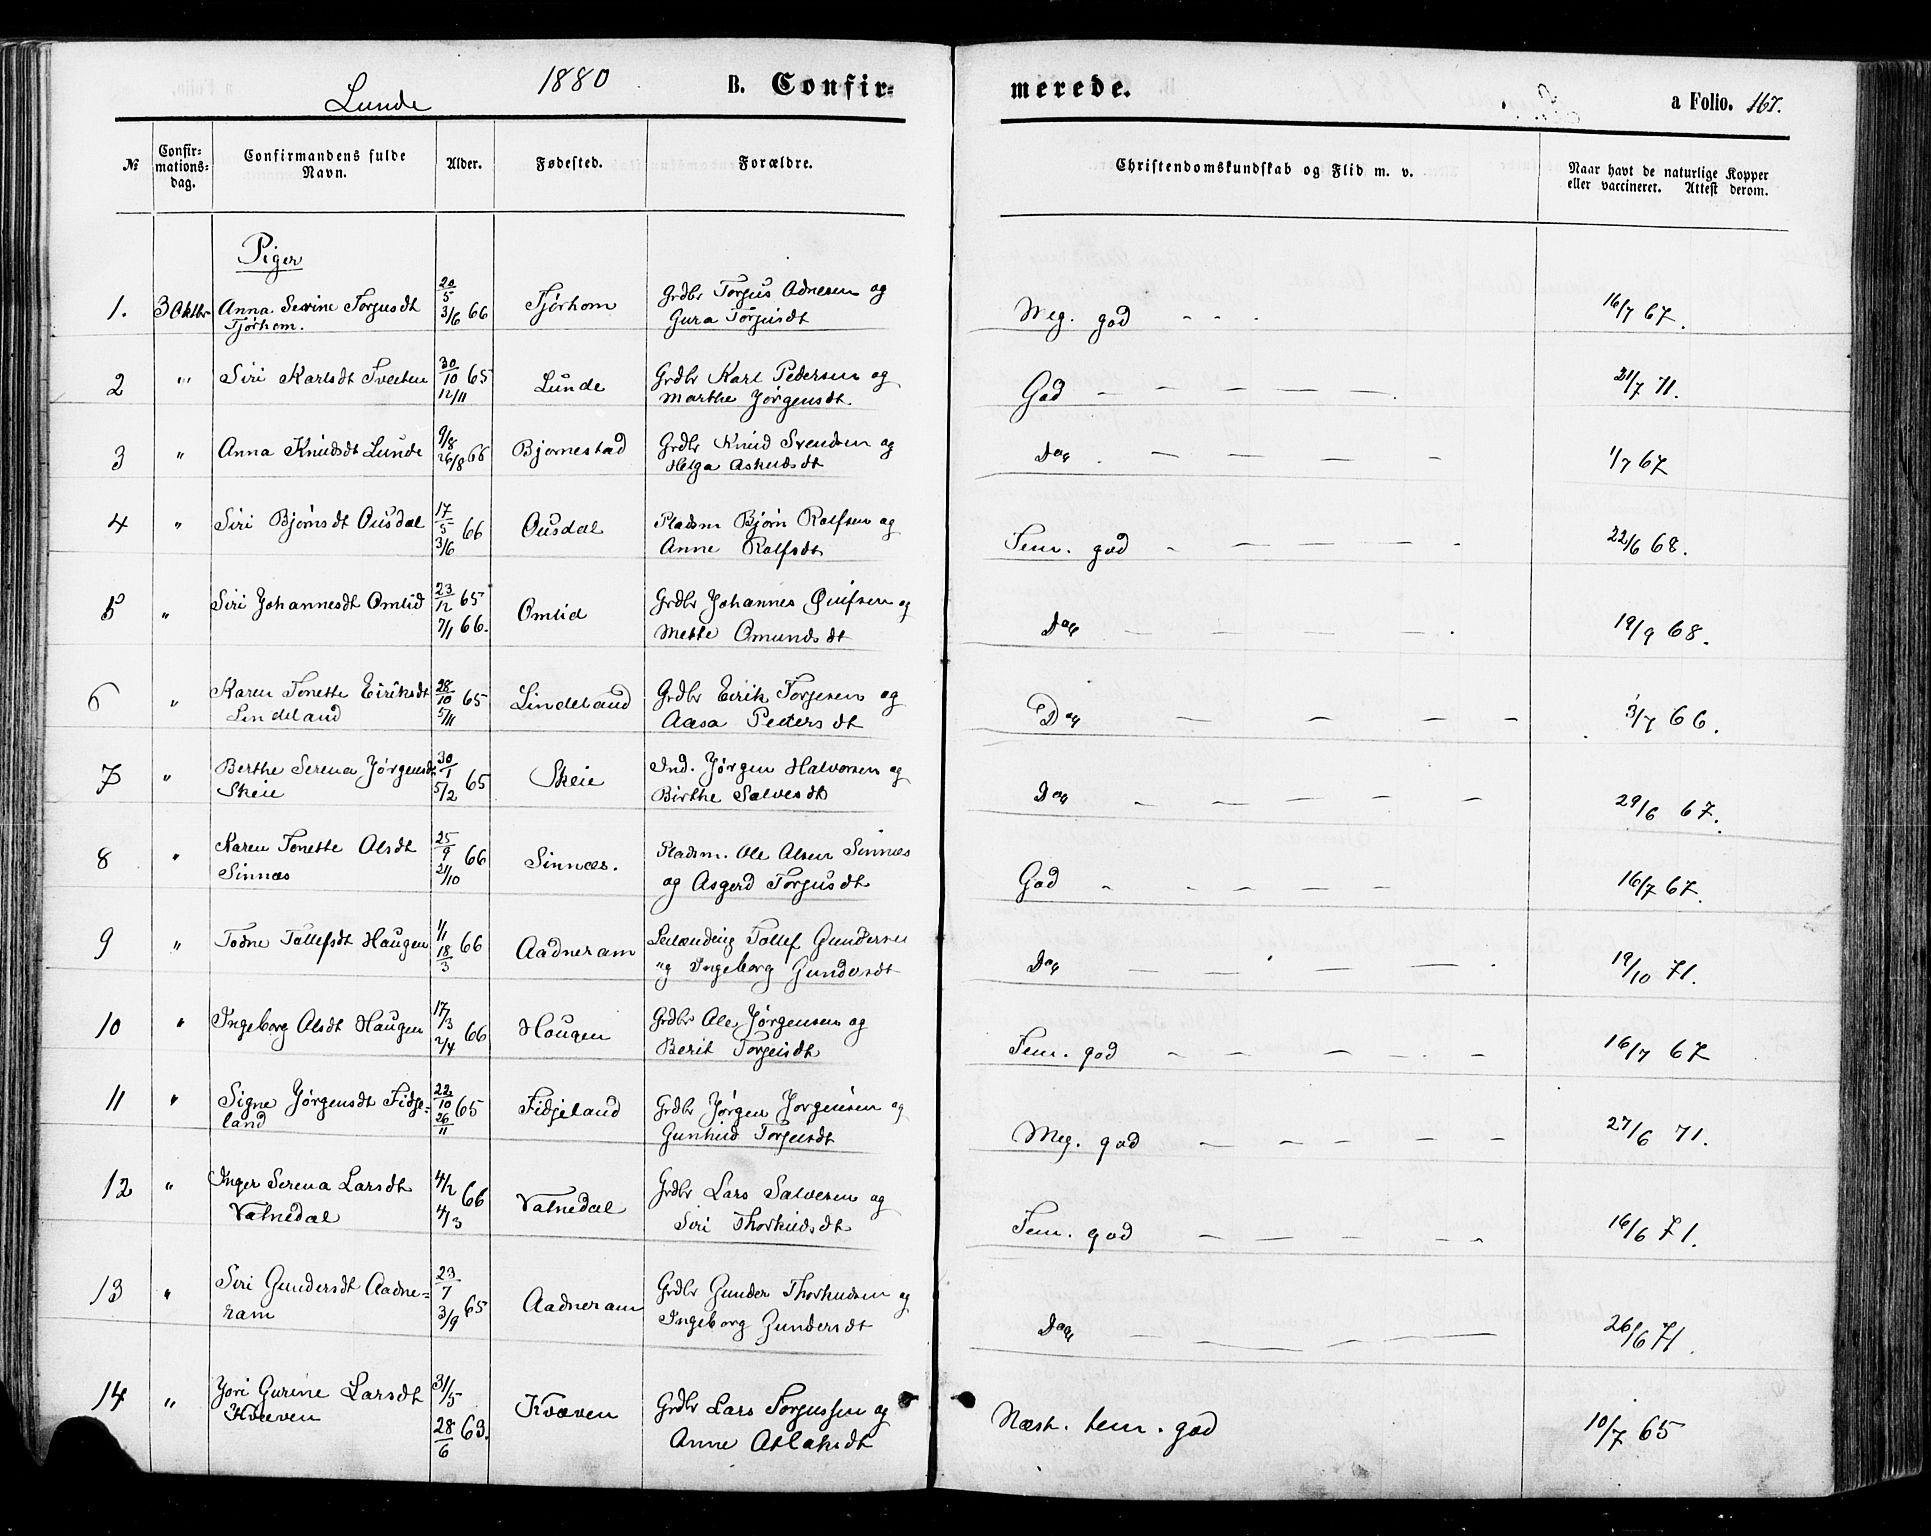 Lunde 1880 B. Confirmerede. a Folio. 167.
№ Confirmationsdag. Confirmandens fulde Navn. Alder. Fødested. Forældre. Christendomskundskab og Flid m. v. Naar havt de naturlige Kopper eller vaccineret. Attest derom.
Piger
1. 3 Oktbr Anna Serine Torgusdt Tjørhom. 20/5 3/6 66 Tjørhom Grdbr Torgus Adnesen og Gura Torgusdt Meg. god - - - 16/7 67.
2 " Siri Karlsdt Tveiten 30/10 12/11 65 Lunde Grdbr Karl Pedersen og Marthe Jørgensdt. God - - - - - 21/7 71.
3 " Anna Knudsdt Lunde 9/8 26/8 66 Bjørnestad Grdbr Knud Svendsen og Helga Aslaksdt Do - - - - - 1/7 67
4 " Siri Bjørnsdt Ousdal 17/5 3/6 66 Ousdal Pladsm Bjørn Rolfsen og Anne Rolfsdt Tem. god - - - - - 22/6 68.
5 " Siri Johannesdt Omlid 23/12 65 7/1 66. Omlid Grdbr Johannes og Mette Omundsdt Do - - - - - 19/9 68.
6 " Karen Tonette Eiriksdt Lindeland 28/10 5/11 65 Lindeland Grdbr Eirik Torjesen og Aasa Pedersdt Do - - - - - 3/7 66.
7 " Berthe Serena Jørgensdt Skeie 30/1 5/2 65 Skeie Ind. Jørgen Halvorsen og Birthe Salvesdt Do - - - - - 29/6 67.
8 " Karen Tonette Olsdt Sinnes 25/9 21/10 66 Sinnæs. Pladsm. Ole Olsen Sinnæs og Asgerd Torjusdt God - - - - - 16/7 67.
9 " Todne Tollefsdt Haugen 1/1 18/3 66 Aadneram Tollef Gundersen og Ingeborg Gundersdt Do - - - - - 19/10 71.
10 " Ingeborg Olsdt Haugen 17/3 2/4 66 Haugen Grdbr Ole Jørgensen og Berit Torgeisdt Tem. god - - - - - 16/7 67
11 " Signe Jørgensdt Fidjeland 22/10 26/11 65 Fidjeland Grdbr Jørgen Jørgensen og Gunhild Torjeisdt Meg. god - - - - - 27/6 71.
12 " Inger Serena Larsdt Vatnedal 4/2 4/3 66 Vatnedal Grdbr Lars Salvesen og Siri Thorkildsdt Tem. god - - - - - 16/6 71.
13 " Siri Gundersdt Aadne=ram 23/7 3/9 65 Aadneram Grdbr Gunder Thorkildsen og Ingeborg Gundersdt Do - - - - - 26/6 71.
14 " Jori Gurine Larsdt Kvæven 31/5 28/6 63. Kvæven Grdbr Lars Torgussen og Anne Atlaksdt Næst. tem. god 10/7 65